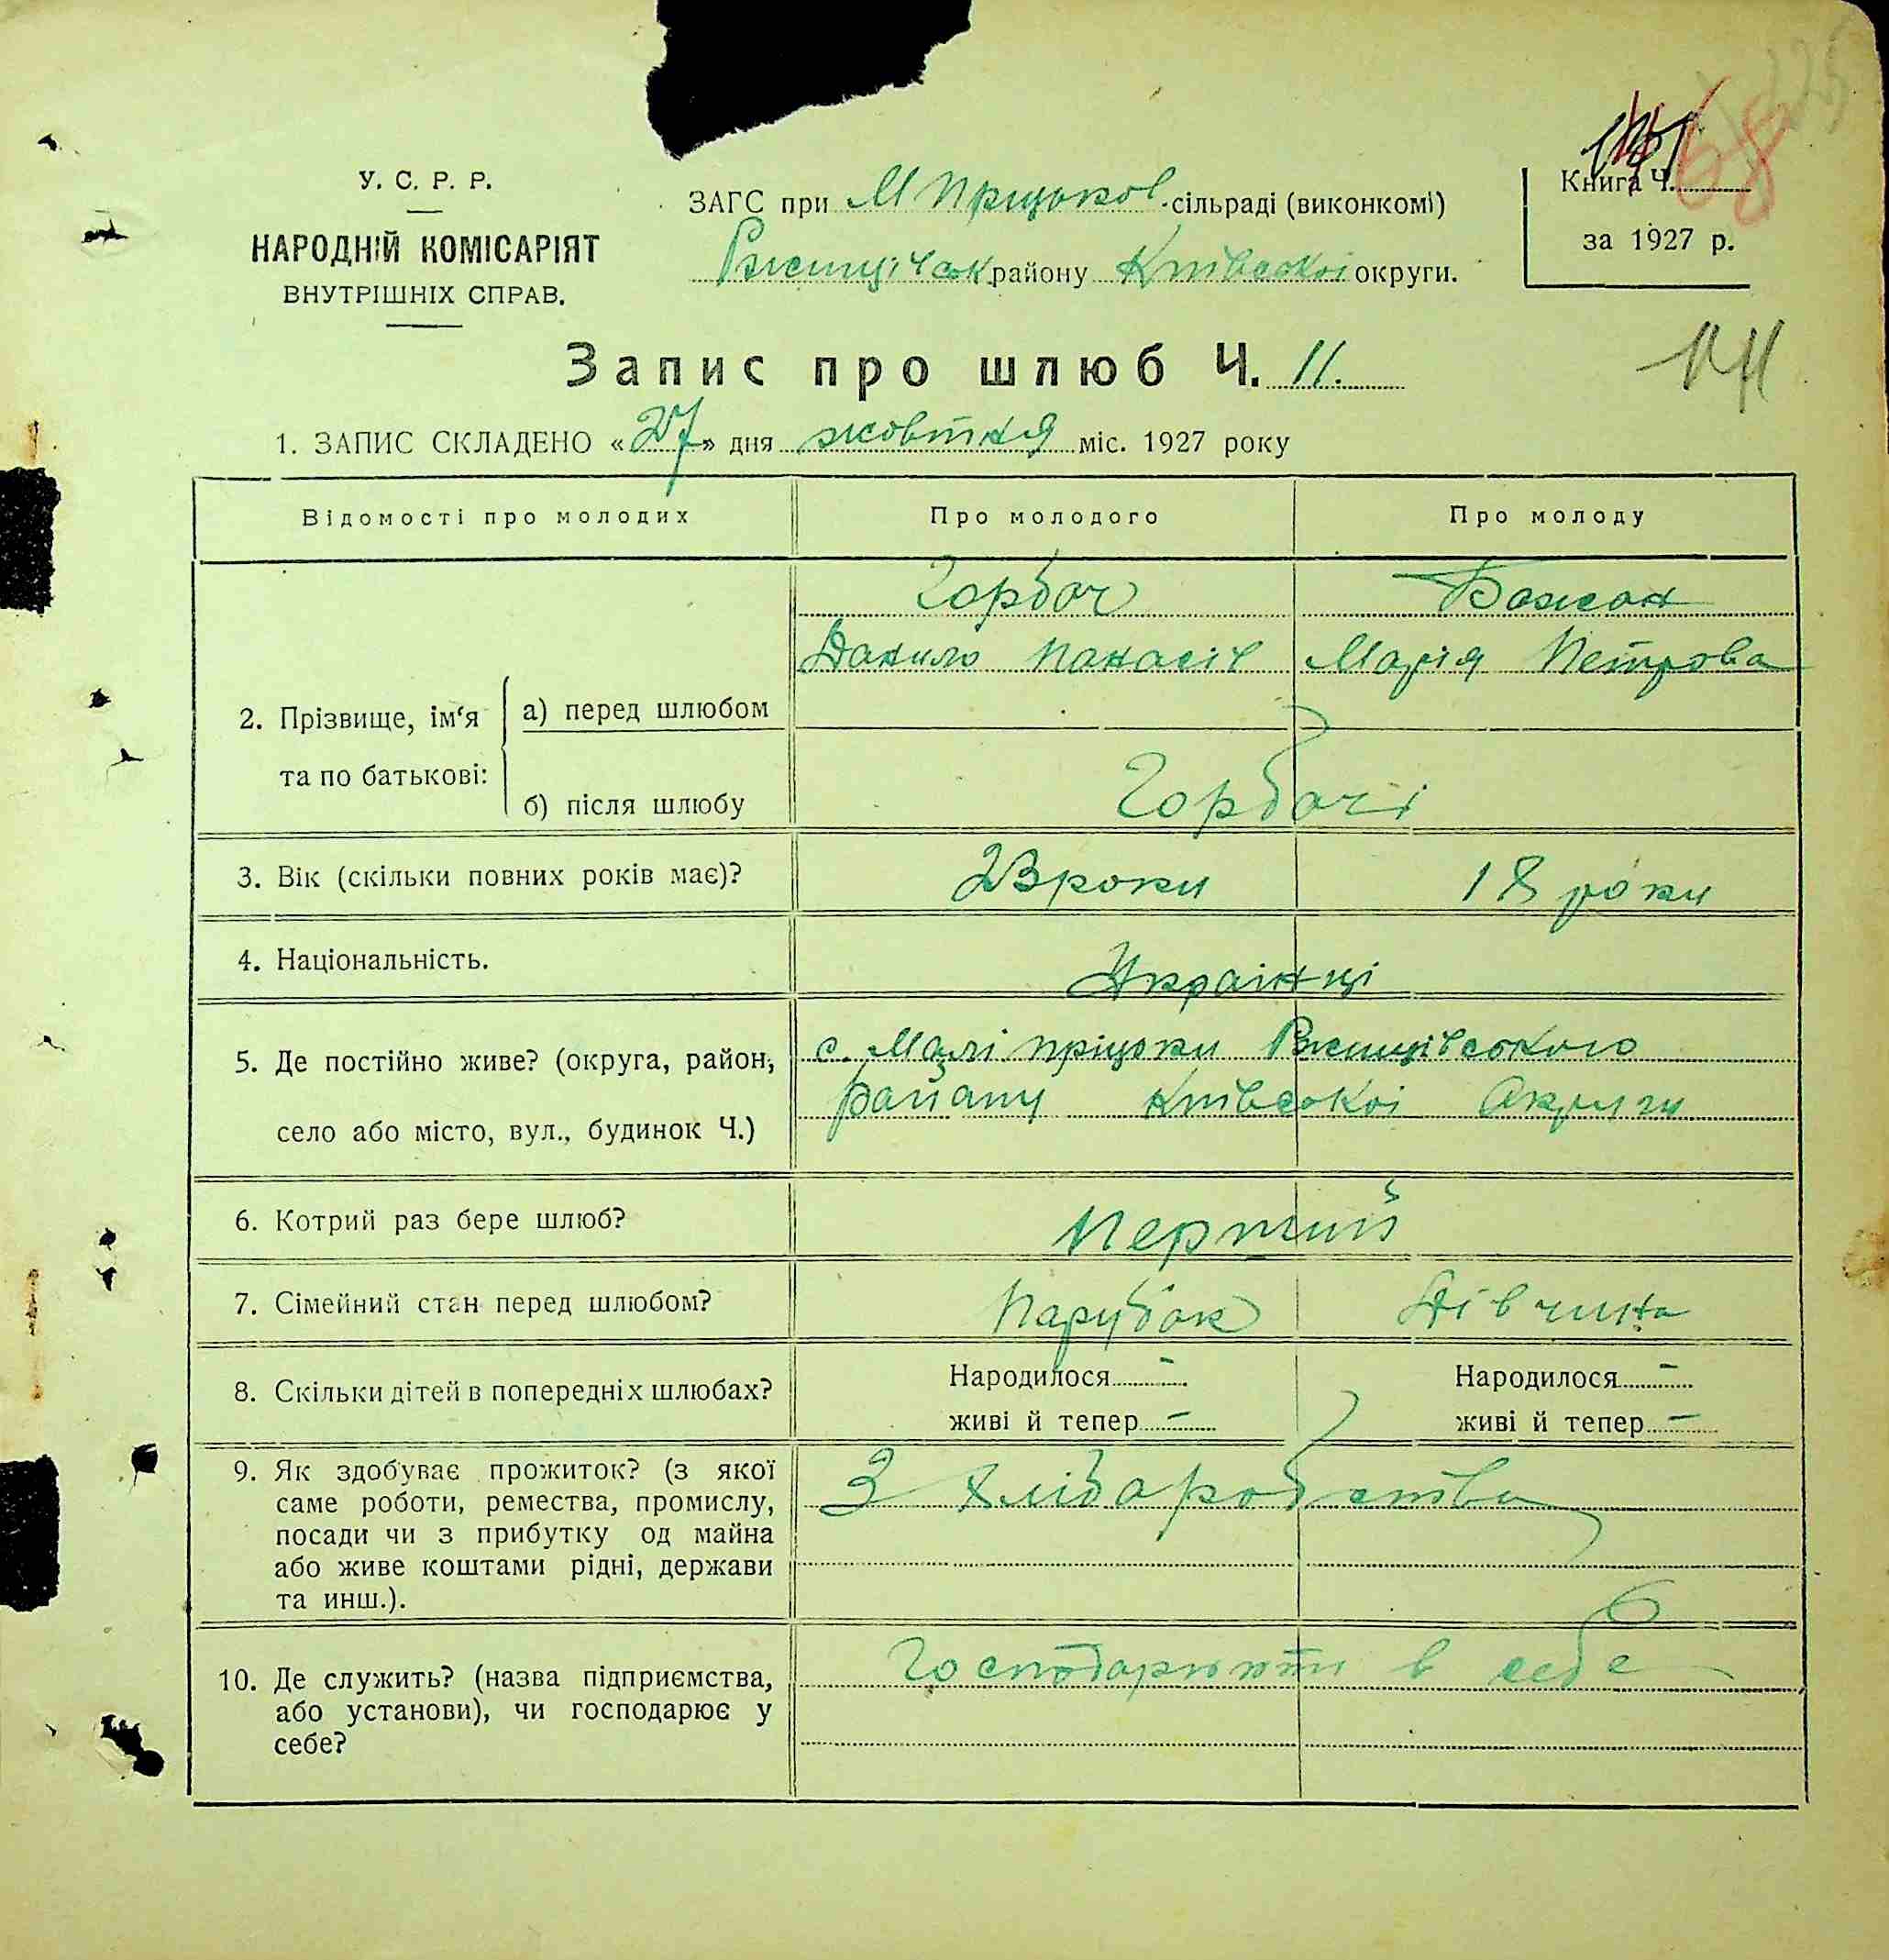 У. С. Р. Р.
НАРОДНІЙ КОМІСАРІЯТ
ВНУТРІШНІХ СПРАВ.
ЗАГС при М Прицьков. сільраді (виконкомі)
Ржищівськ району Київської округи.
Книга Ч. 68
за 1927 р.
Запис про шлюб Ч. 11.
1. ЗАПИС СКЛАДЕНО «27» дня жовтня міс. 1927 року
Відомості про молодих Про молодого Про молоду
2. Прізвище, ім‘я та по батькові:
а) перед шлюбом
Горбач Бажан
Данило Панасів Марія Петрова
б) після шлюбу
Горбачі
3. Вік (скільки повних років має)? 23 роки 18 роки
4. Національність. Українці
5. Де постійно живе? (округа, район, с. Малі пріцьки Ржищівського
село або місто, вул., будинок Ч.) району Київської Округи
6. Котрий раз бере шлюб? Перший
7. Сімейний стан перед шлюбом? Парубок Дівчина
8. Скільки дітей в попередніх шлюбах? Народилося — Народилося —
живі й тепер — живі й тепер —
9. Як здобуває прожиток? (з якої
саме роботи, ремества, промислу,
посади чи з прибутку од майна
або живе коштами рідні, держави
та инш.).
З Хлібаробства
10. Де служить? (назва підприємства,
або установи), чи господарює у
себе?
Господарюють в себе